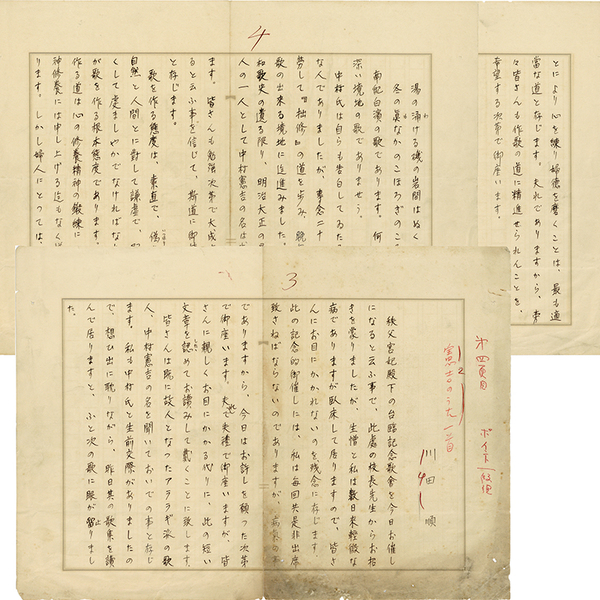 3
第四頁目
憲吉のうた 一首。
川田 順
秩父宮妃殿下の台臨記念歌會を今日お催し
になると云ふ事で、此處の校長先生からお招
きを蒙りましたが、生憎と私は數日来軽微な
病でありますが臥床して居りますので、皆さ
んにお目にかかれないのを残念に存じます。
此の記念的御催しには、私は毎回共是非出席
致さねばならないのでありますが、病気の
でありますから、今日はお許しを願った次第
で御座います。夫れで失禮で御座いますが、皆
さんに親しくお目にかかる代りに、此の短い
文章を認めてお讀みして戴くことに致します。
皆さんは既に故人となったアララギ派の歌
人、中村憲吉の名を聞いておいでの事と存じ
ます。私も中村氏と生前交際がありましたの
で、想ひ出に耽りながら、昨日其の歌集を讀
んで居りますと、ふと次の歌に眼が留りまし
た。
4
湯の涌ける磯の岩間はぬく
冬の眞なかのこほろぎのこ
南紀白濱の歌であります。何
深い境地の歌でありませう。
中村氏は自らも告白してゐた
な人でありましたが、専念二十
努して『拙修』の道を歩み、
歌の出来る境地に迄進みました。
和歌史の遺る限り、明治大正の
人の一人として中村憲吉の名は
ます。皆さんも勉強次第で大成
ると云ふ事を信じて、斯道に御
と存じます。
歌を作る態度は、素直で、偽
自然と人間とに對して謙虚で、
くして虔ましやかでなければな
が歌を作る根本態度であります。
作る道は心の修養精神の鍛錬に
神修養には申し上げる迄もなく
ります。しかし婦人にとっては、
とにより心を練り婦徳を磨くことは、最も適
當な道と存じます。夫れでありますから、
々皆さんも作歌の道に精進せられんことを、
希望する次第で御座います。